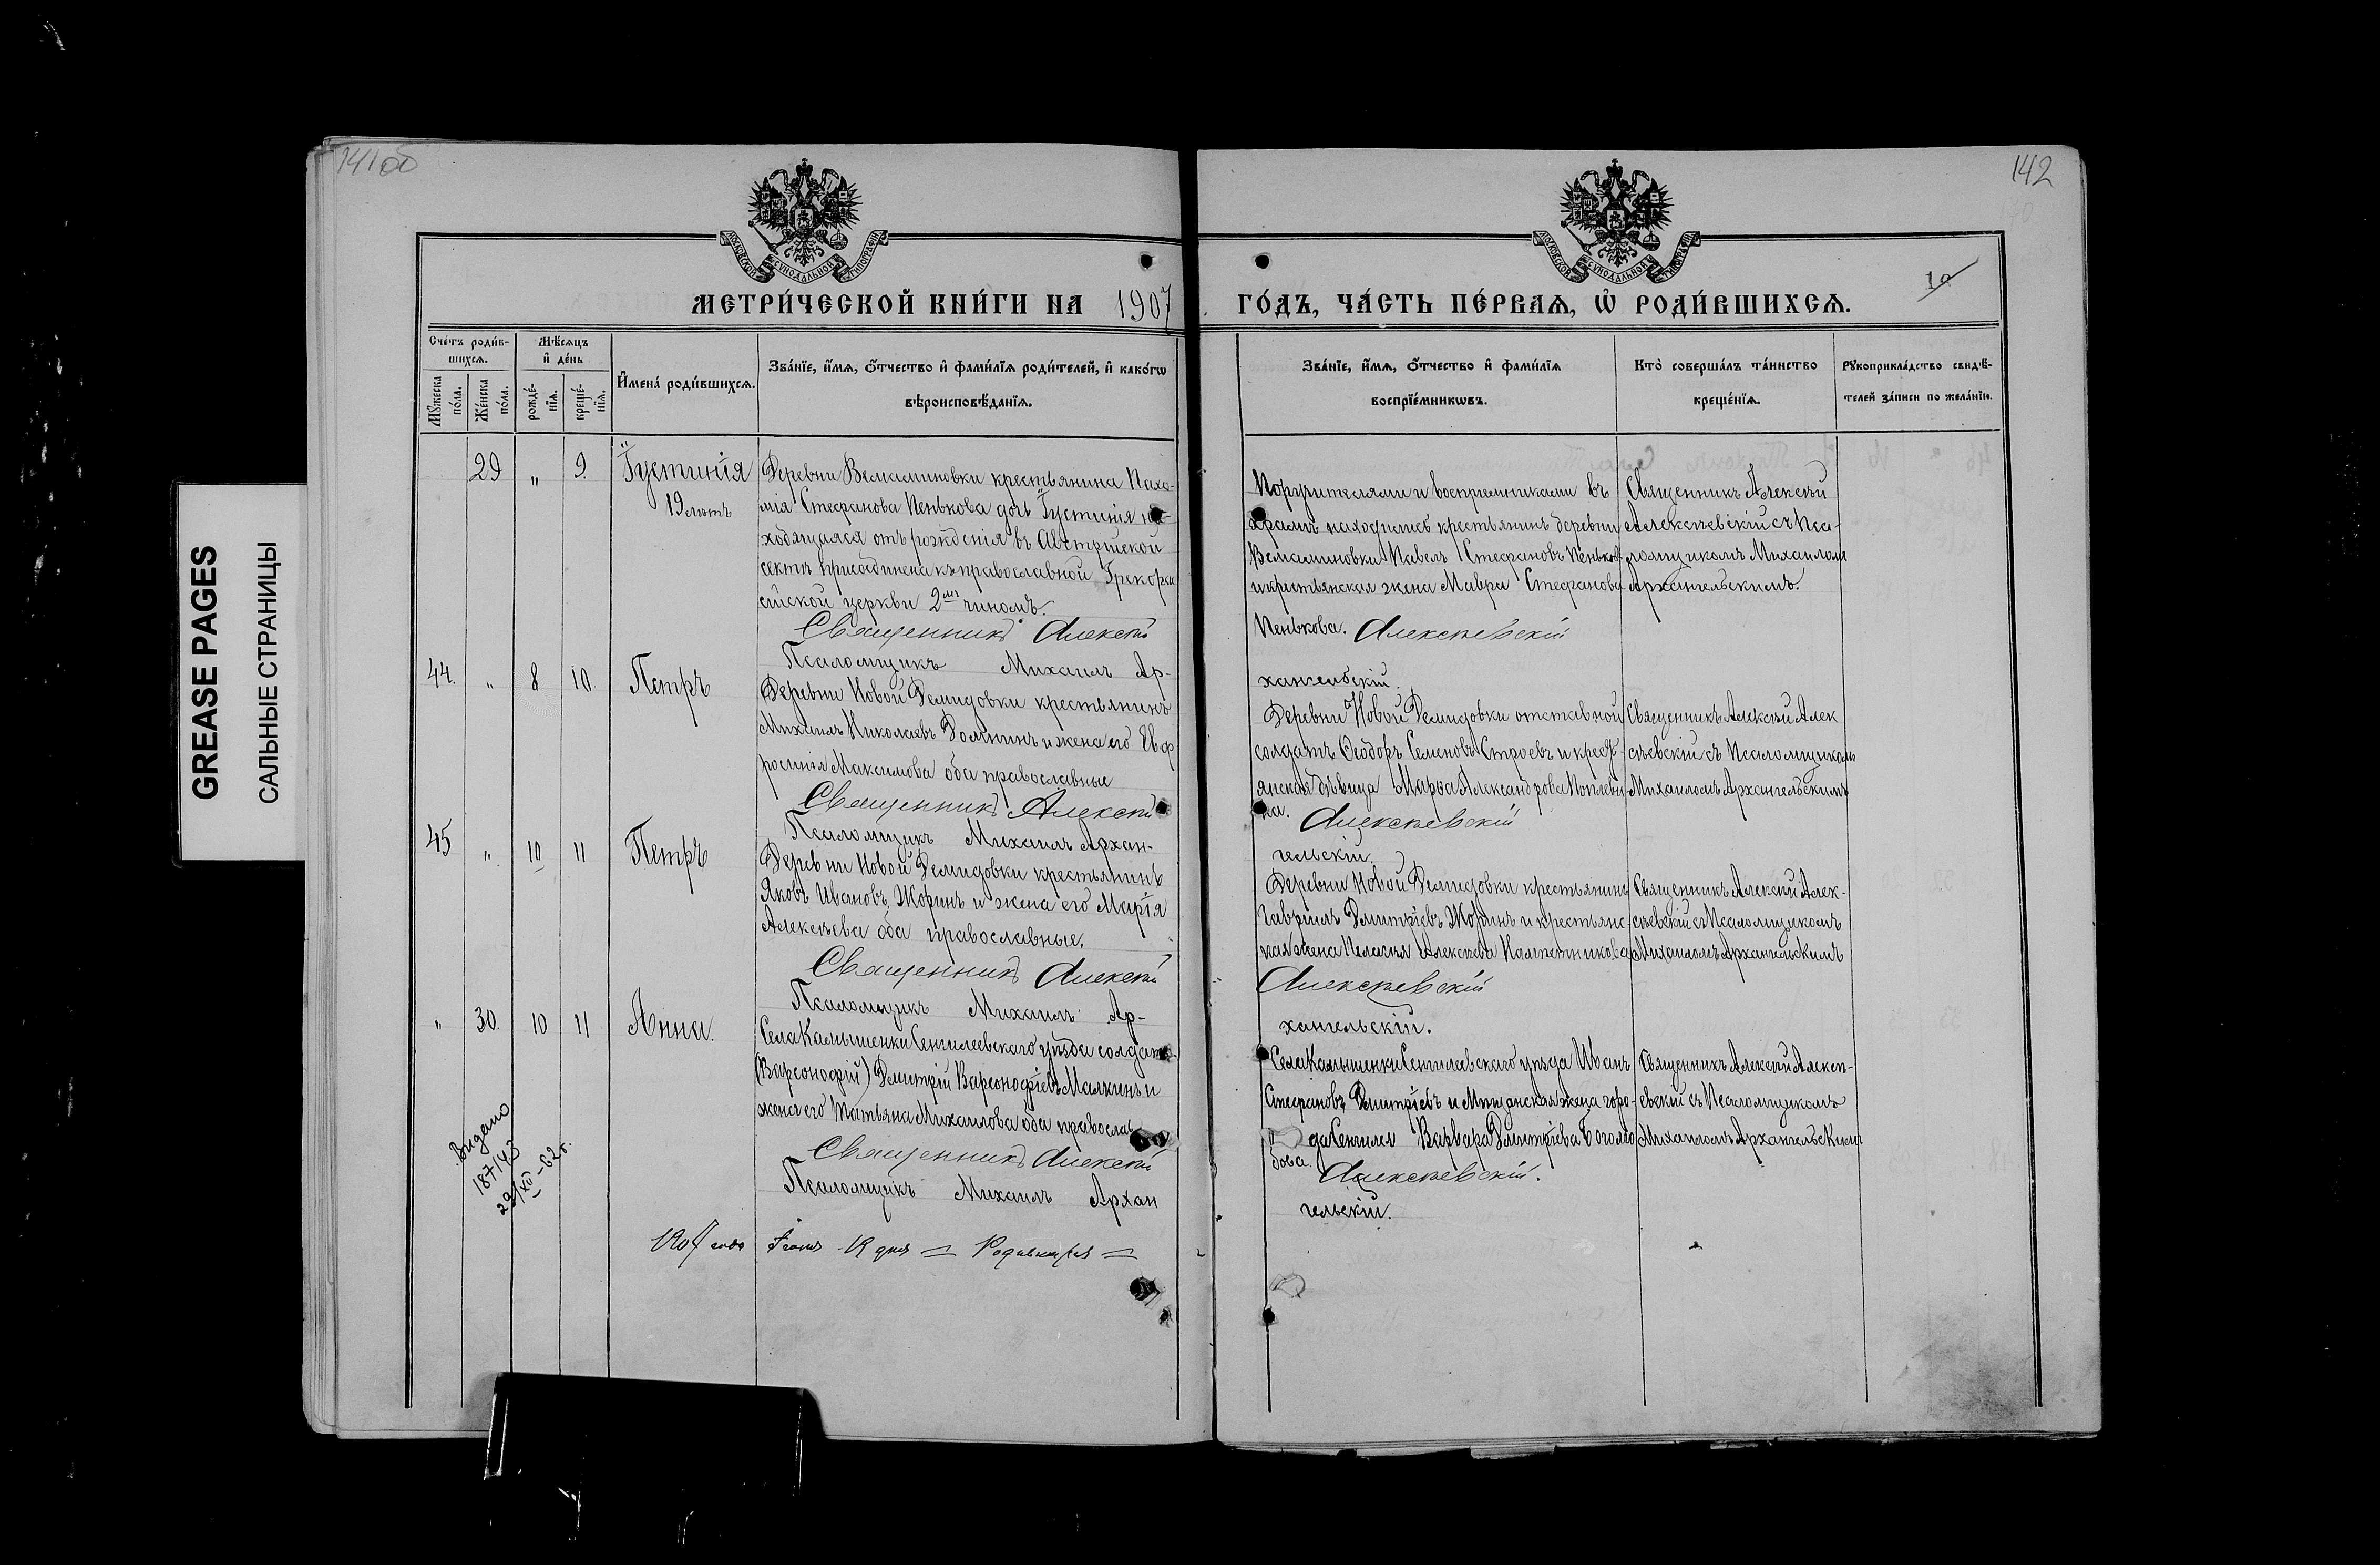 141об
142
10
GREASE PAGES
САЛЬНЫЕ СТРАНИЦЫ
МОСКОВСКОЙ СѴНОДАЛЬНОЙ ТИПОГРАФІИ
МОСКОВСКОЙ СѴНОДАЛЬНОЙ ТИПОГРАФІИ
МЕТРИ́ЧЕСКОЙ КНИ́ГИ НА 1907 ГО́ДЪ, ЧА́СТЬ ПЕ́РВАѦ, Ѡ҆ РОДИ́ВШИХСѦ.
Сче́тъ роди́вшихсѧ.
Мꙋ́жеска по́ла.
Же́нска по́ла.
Мѣ́сѧцъ и҆ де́нь
рожде́нїѧ.
креще́нїѧ.
И҆мена̀ роди́вшихсѧ.
Зва́нїе, и҆́мѧ, ѻ҆́тчество и҆ фами́лїѧ роди́телей, и҆ како́гѡ
вѣроисповѣ́данїѧ.
Зва́нїе, и҆́мѧ, ѻ҆́тчество и҆ фами́лїѧ
воспрїе́мникѡвъ.
Кто̀ соверша́лъ та́инство
креще́нїѧ.
Рꙋкоприкла́дство свидѣ́-
телей за́писи по жела́нїю.
29 " 9 Іустинія
19 лѣтъ
Деревни Вельяминовки крестьянина Пахо-
мія Стефанова Пенькова дочь Іустинія на-
ходящаяся отъ рожденія въ Австрійской
сектѣ присоединена къ православной Грекорос
сійской церкви 2мъ чиномъ.
Священникъ Алексѣй
Псаломщикъ Михаилъ Ар-
Поручителями и воспріемниками въ
храмѣ находились крестьянинъ деревни
Вельяминовки Павелъ Стефановъ Пеньковъ
и крестьянская жена Мавра Стефанова
Пенькова. Алексѣевскій
хангельскій.
Священникъ Алексѣй
Алексѣевскій съ Пса-
ломщикомъ Михаиломъ
Архангельскимъ.
44. " 8 10. Петръ
Деревни Новой Демидовки крестьянинъ
Михаилъ Николаевъ Домнинъ и жена его Евф
росинія Максимова оба православные
Священникъ Алексѣй
Псаломщикъ Михаилъ Архан-
Деревни Новой Демидовки отставной
солдатъ Ѳеодоръ Семеновъ Строевъ и крест-
янская дѣвица Марѳа Александрова
на. Алексѣевскій
гельскій.
Священникъ Алексѣй Алек
сѣевскій съ Псаломщикомъ
Михаиломъ Архангельскимъ
45 " 10 11 Петръ
Деревни Новой Демидовки крестьянинъ
Яковъ Ивановъ Жоринъ и жена его Марія
Алексѣева оба православные.
Священникъ Алексѣй
Псаломщикъ Михаилъ Ар-
Деревни Новой Демидовки крестьянинъ
Гавріилъ Димитріевъ Жоринъ и крестьянс-
кая жена Пелагія Алексѣева
Алексѣевскій
хангельскій.
Священникъ Алексѣй Алек-
сѣевскій съ Псаломщикомъ
Михаиломъ Архангельскимъ
" 30. 10 11 Анна.
Села Камышенки Сенгилеевскаго уѣзда солдатъ
(Варсонофій) Дмитрій Варсонофіевъ Малкинъ и
жена его Татьяна Михаилова оба православ
Священникъ Алексѣй
Псаломщикъ Михаилъ Архан
Села Камышенки Сенгилеевскаго уѣзда Иванъ
Стефановъ Димитріевъ и Мѣщанская жена горо-
да Сенгилея Варвара Димитріева Боголю
бова. Алексѣевскій.
гельскій.
Священникъ Алексѣй Алексѣ-
евскій съ Псаломщикомъ
Михаиломъ Архангельскимъ
Видано
187143
29/XII-62г.
1907 года Іюня 19 дня = Родившихся =